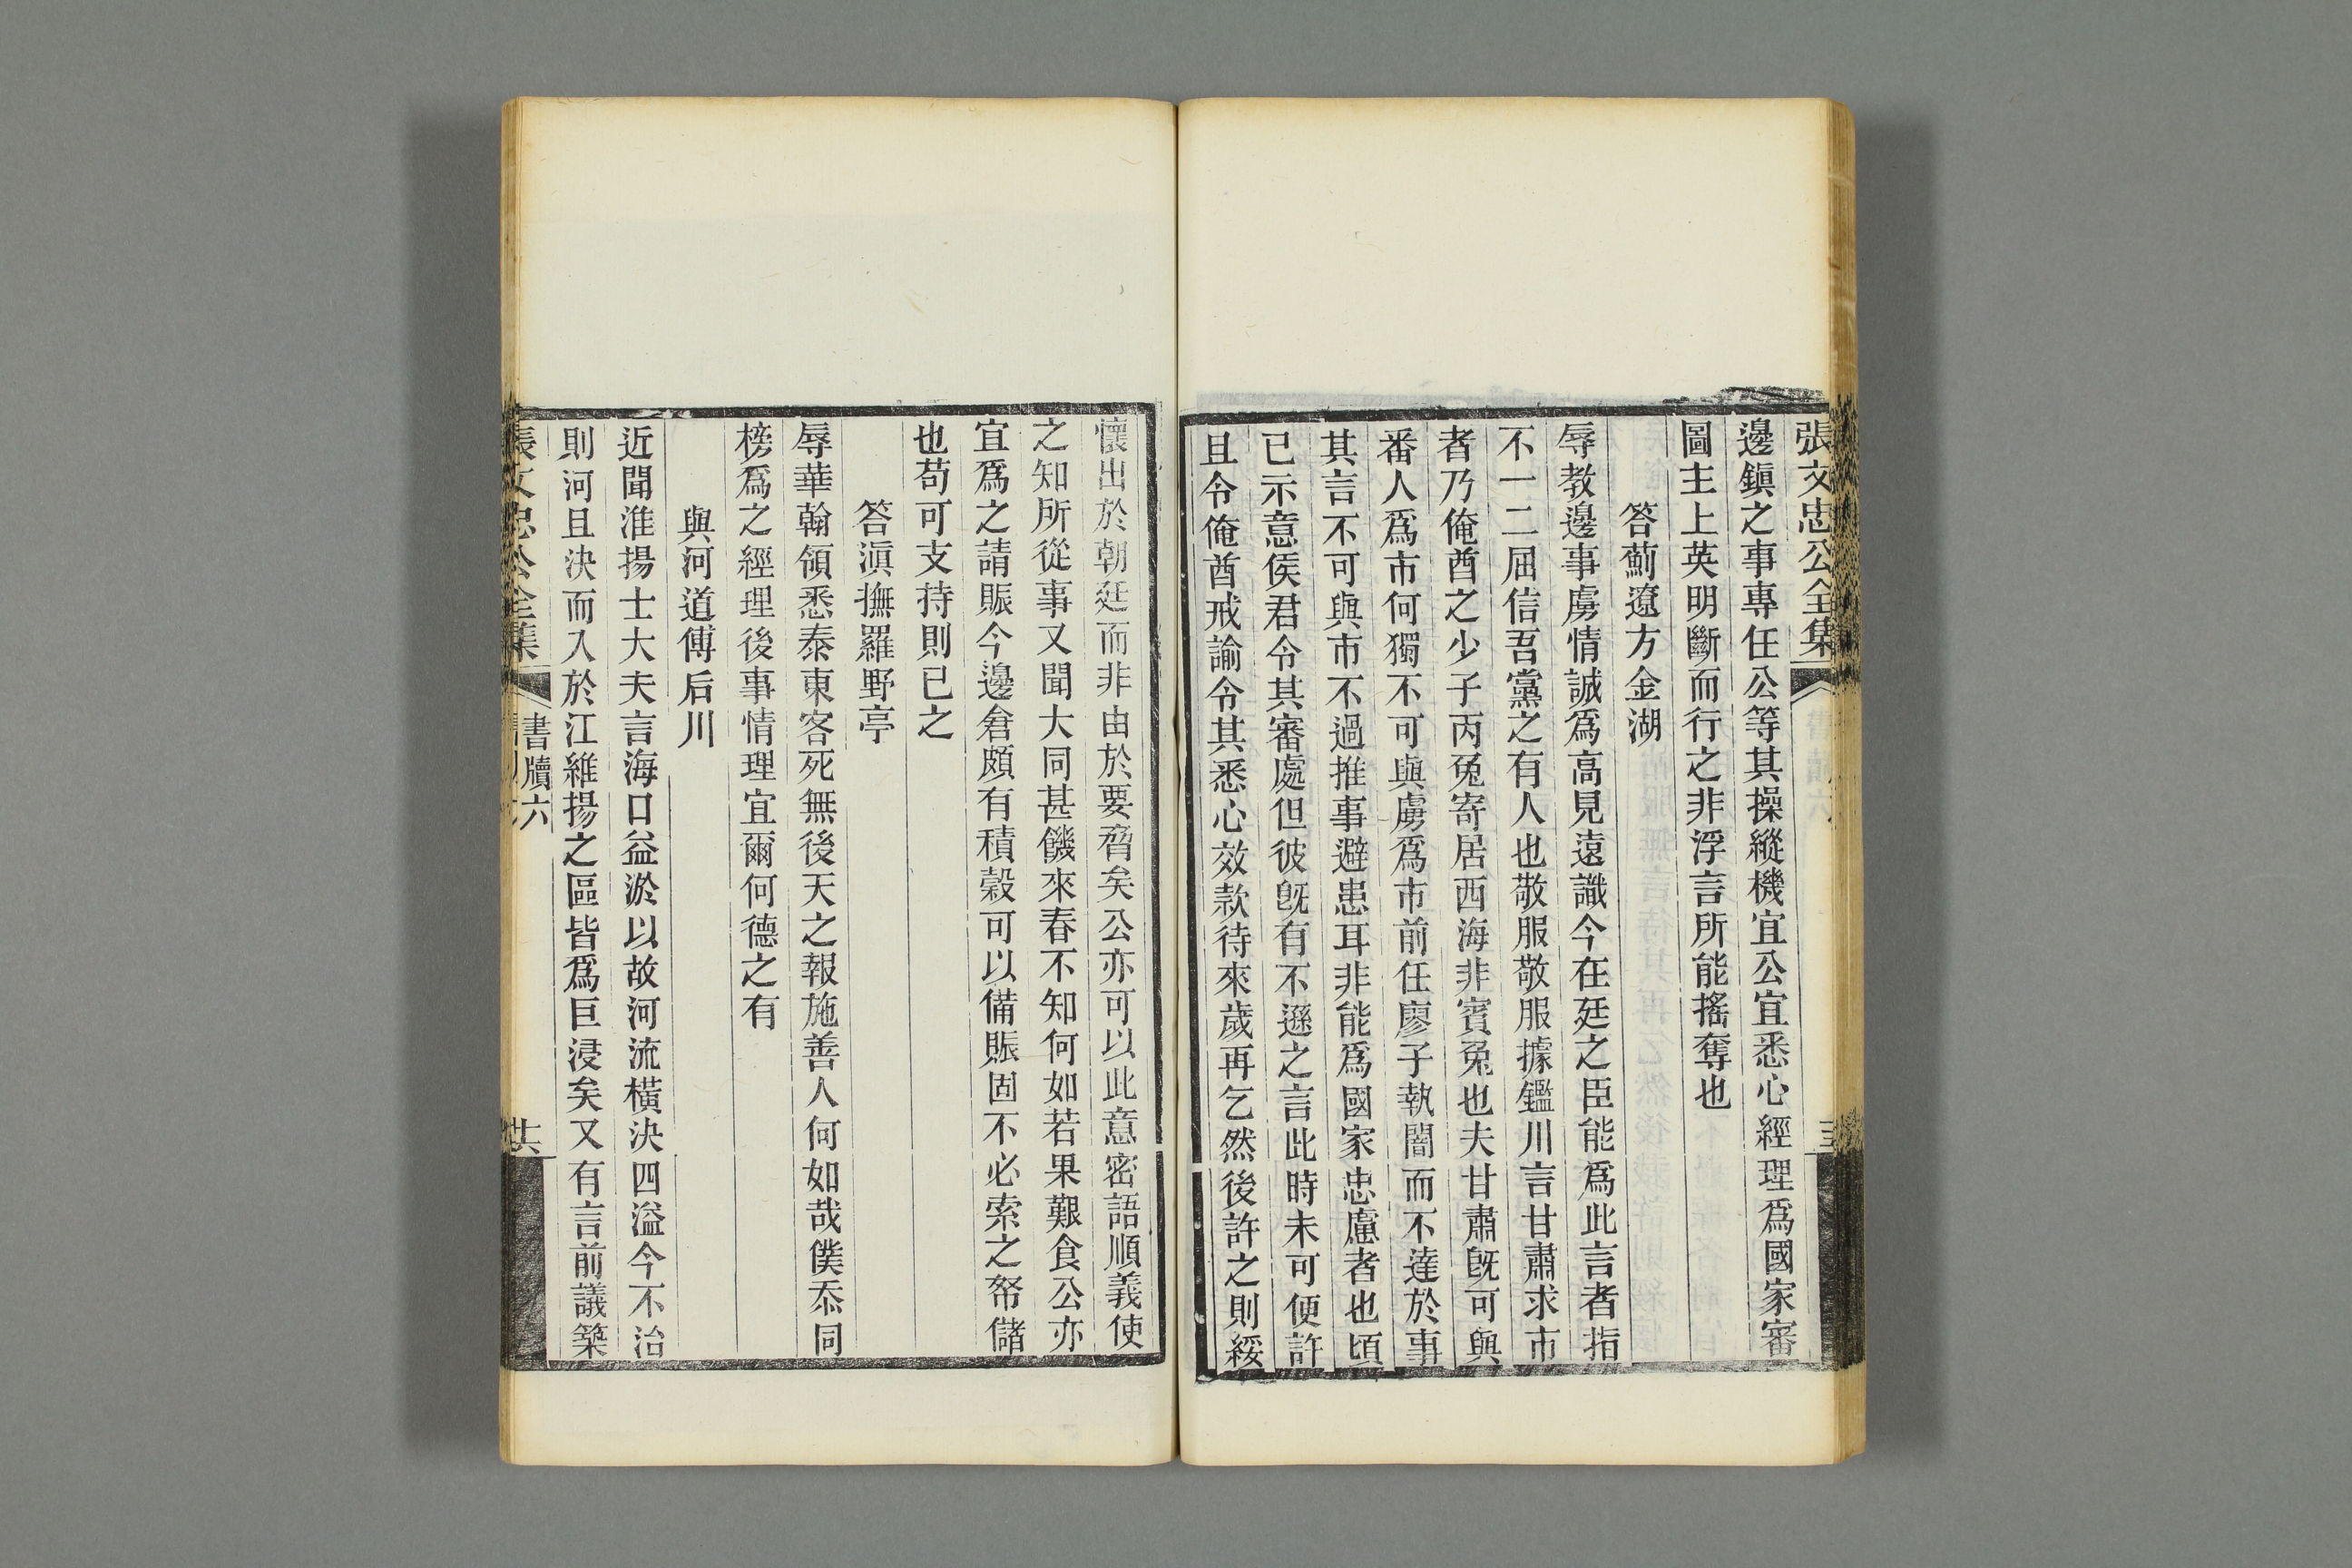 張文忠公全集
邊鎮之事專任公等其操縱機宜公宜悉心經理爲國家審
圖主上英明斷而行之非浮言所能搖奪也
答薊遼方金湖
辱教邊事虜情誠爲高見遠識今在廷之臣能爲此言者指
不一二屈信吾黨之有人也敬服敬服據鑑川言甘肅求市
者乃俺酋之少子丙兔寄居西海非賓兔也夫甘肅旣可與
番人爲市何獨不可與虜爲市前任廖子執闇而不達於事
其言不可與市不過推事避患耳非能爲國家忠慮者也頃
已示意侯君令其審處但彼旣有不遜之言此時未可便許
且令俺酋戒諭令其悉心效款待來歲再乞然後許之則綏
懷出於朝廷而非由於要脅矣公亦可以此意密語順義使
之知所從事又聞大同甚饑來春不知何如若果艱食公亦
宜爲之請賑今邊倉頗有積穀可以備賑固不必索之帑儲
也苟可支持則已之
答滇撫羅野亭
辱華翰領悉泰東客死無後天之報施善人何如哉僕忝同
榜爲之經理後事情理宜爾何德之有
與河道傅后川
近聞淮揚士大夫言海口益淤以故河流橫決四溢今不治
則河且決而入於江維揚之區皆爲巨浸矣又有言前議築
張文忠公全集
書牘六
廿六